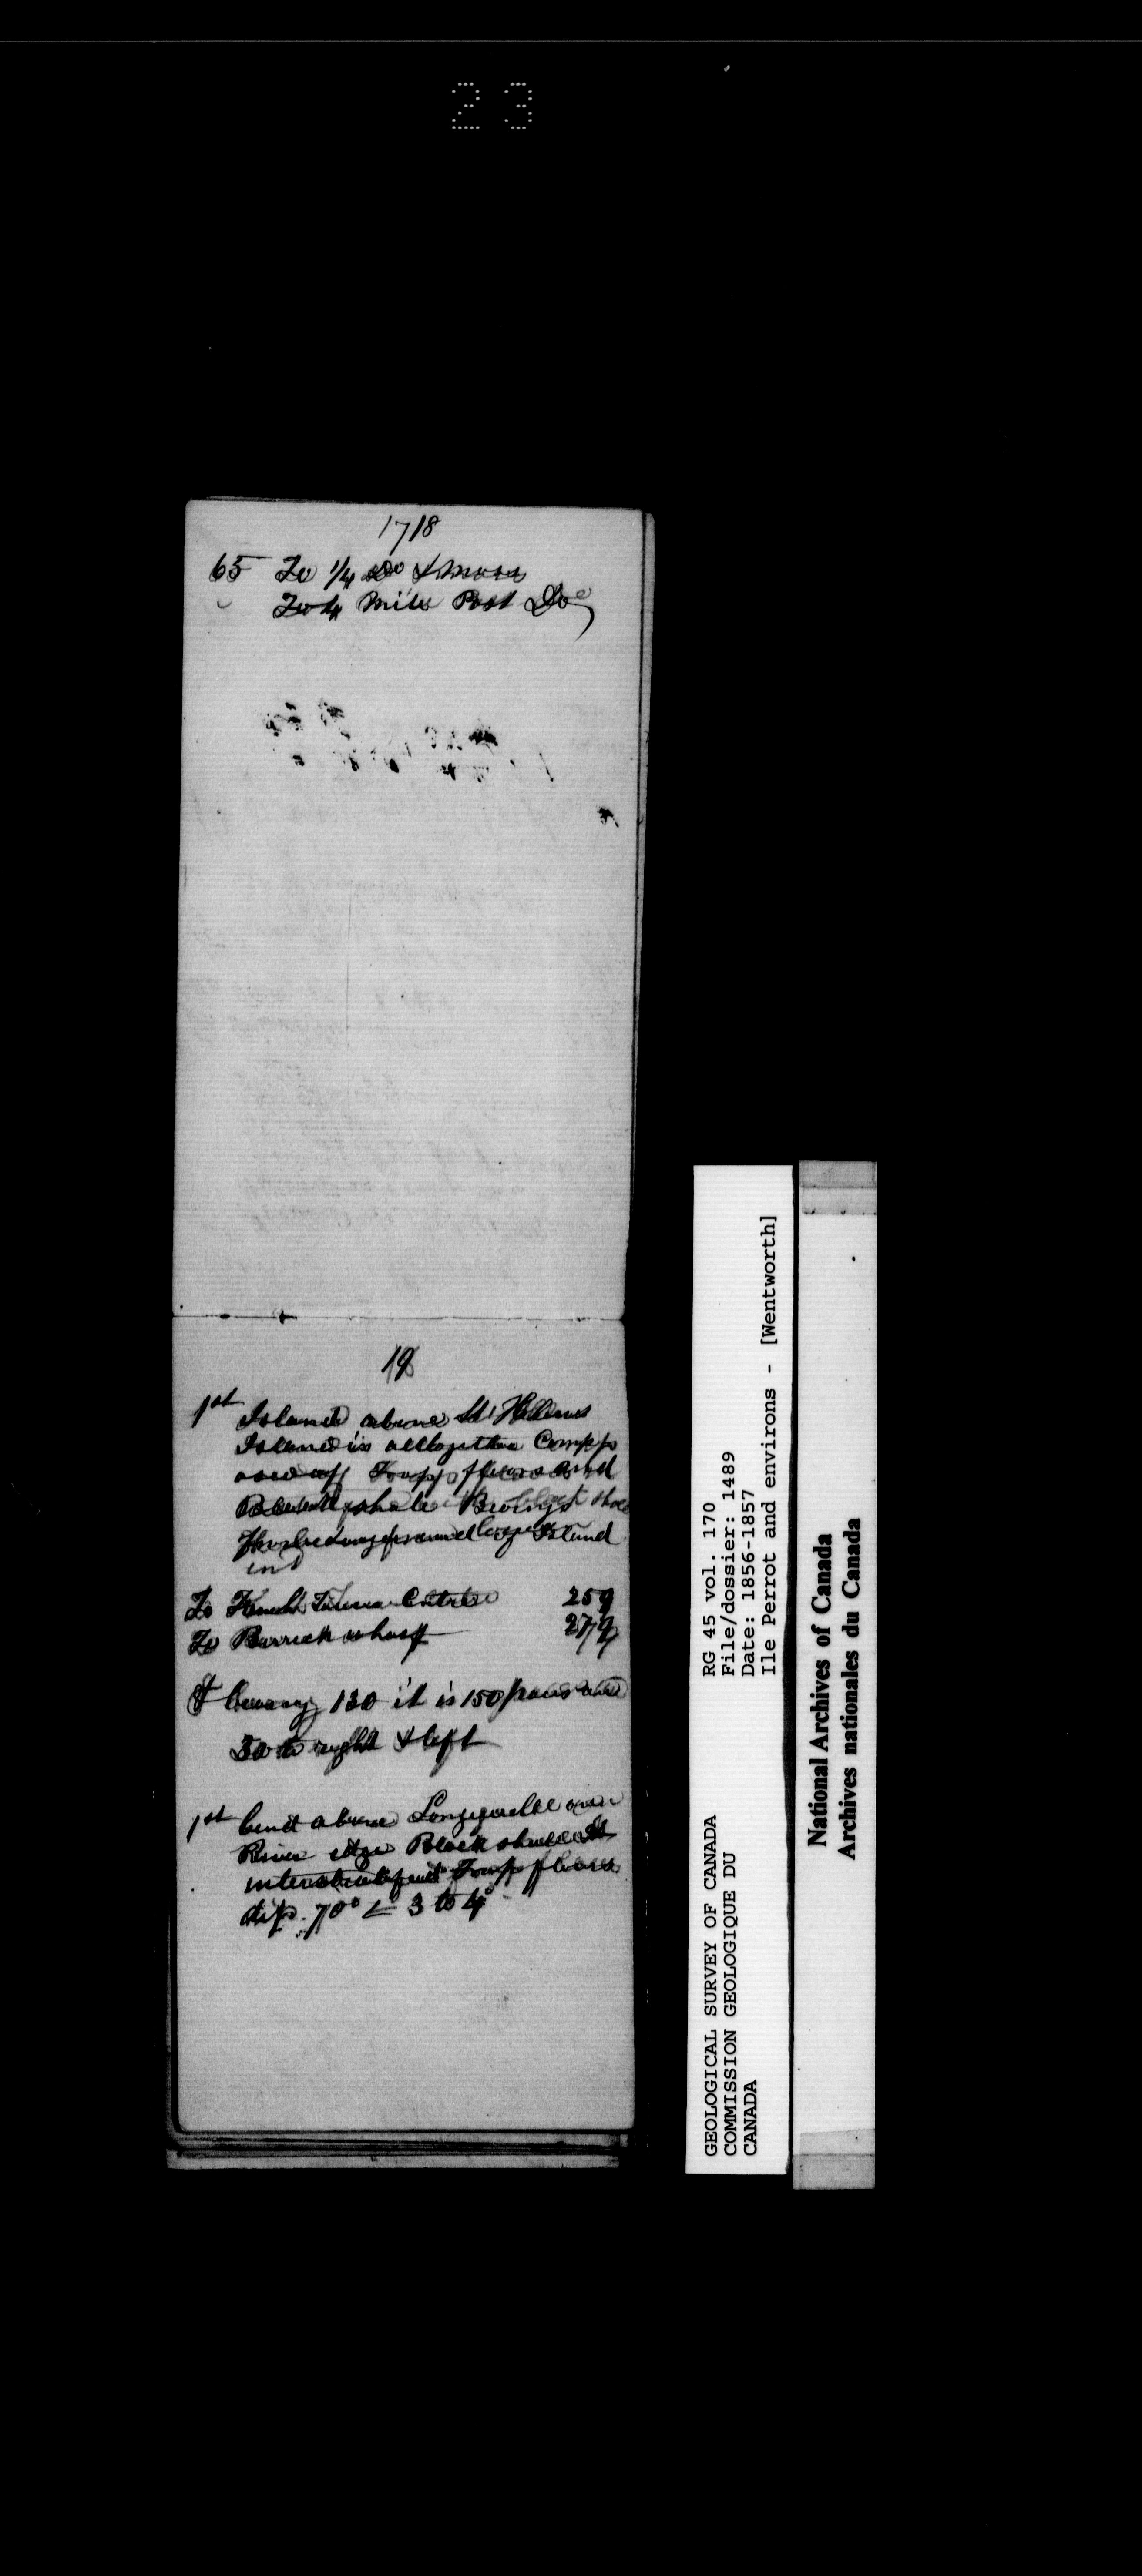 23
1718
65 To 1/4 Do & more
To 4 Mile Post Do
19
1st Island above St Hellens
Island is alltogether Compo
osed of Trapp floors and
shale
Island
in
To French Tower Centre 259
To Barrick wharf 279
bearing 130 it is 150 paces
50 to right & left
1st bend above Longguelle on
River edge Black shale
interstratified Trapp floors
dip. 70° ∠ 3 to 4°
GEOLOGICAL SURVEY OF CANADA
COMMISSION GEOLOGIQUE DU
CANADA
RG 45 vol. 170
File/dossier: 1489
Date: 1856-1857
Ile Perrot and environs - [Wentworth]
National Archives of Canada
Archives nationales du Canada